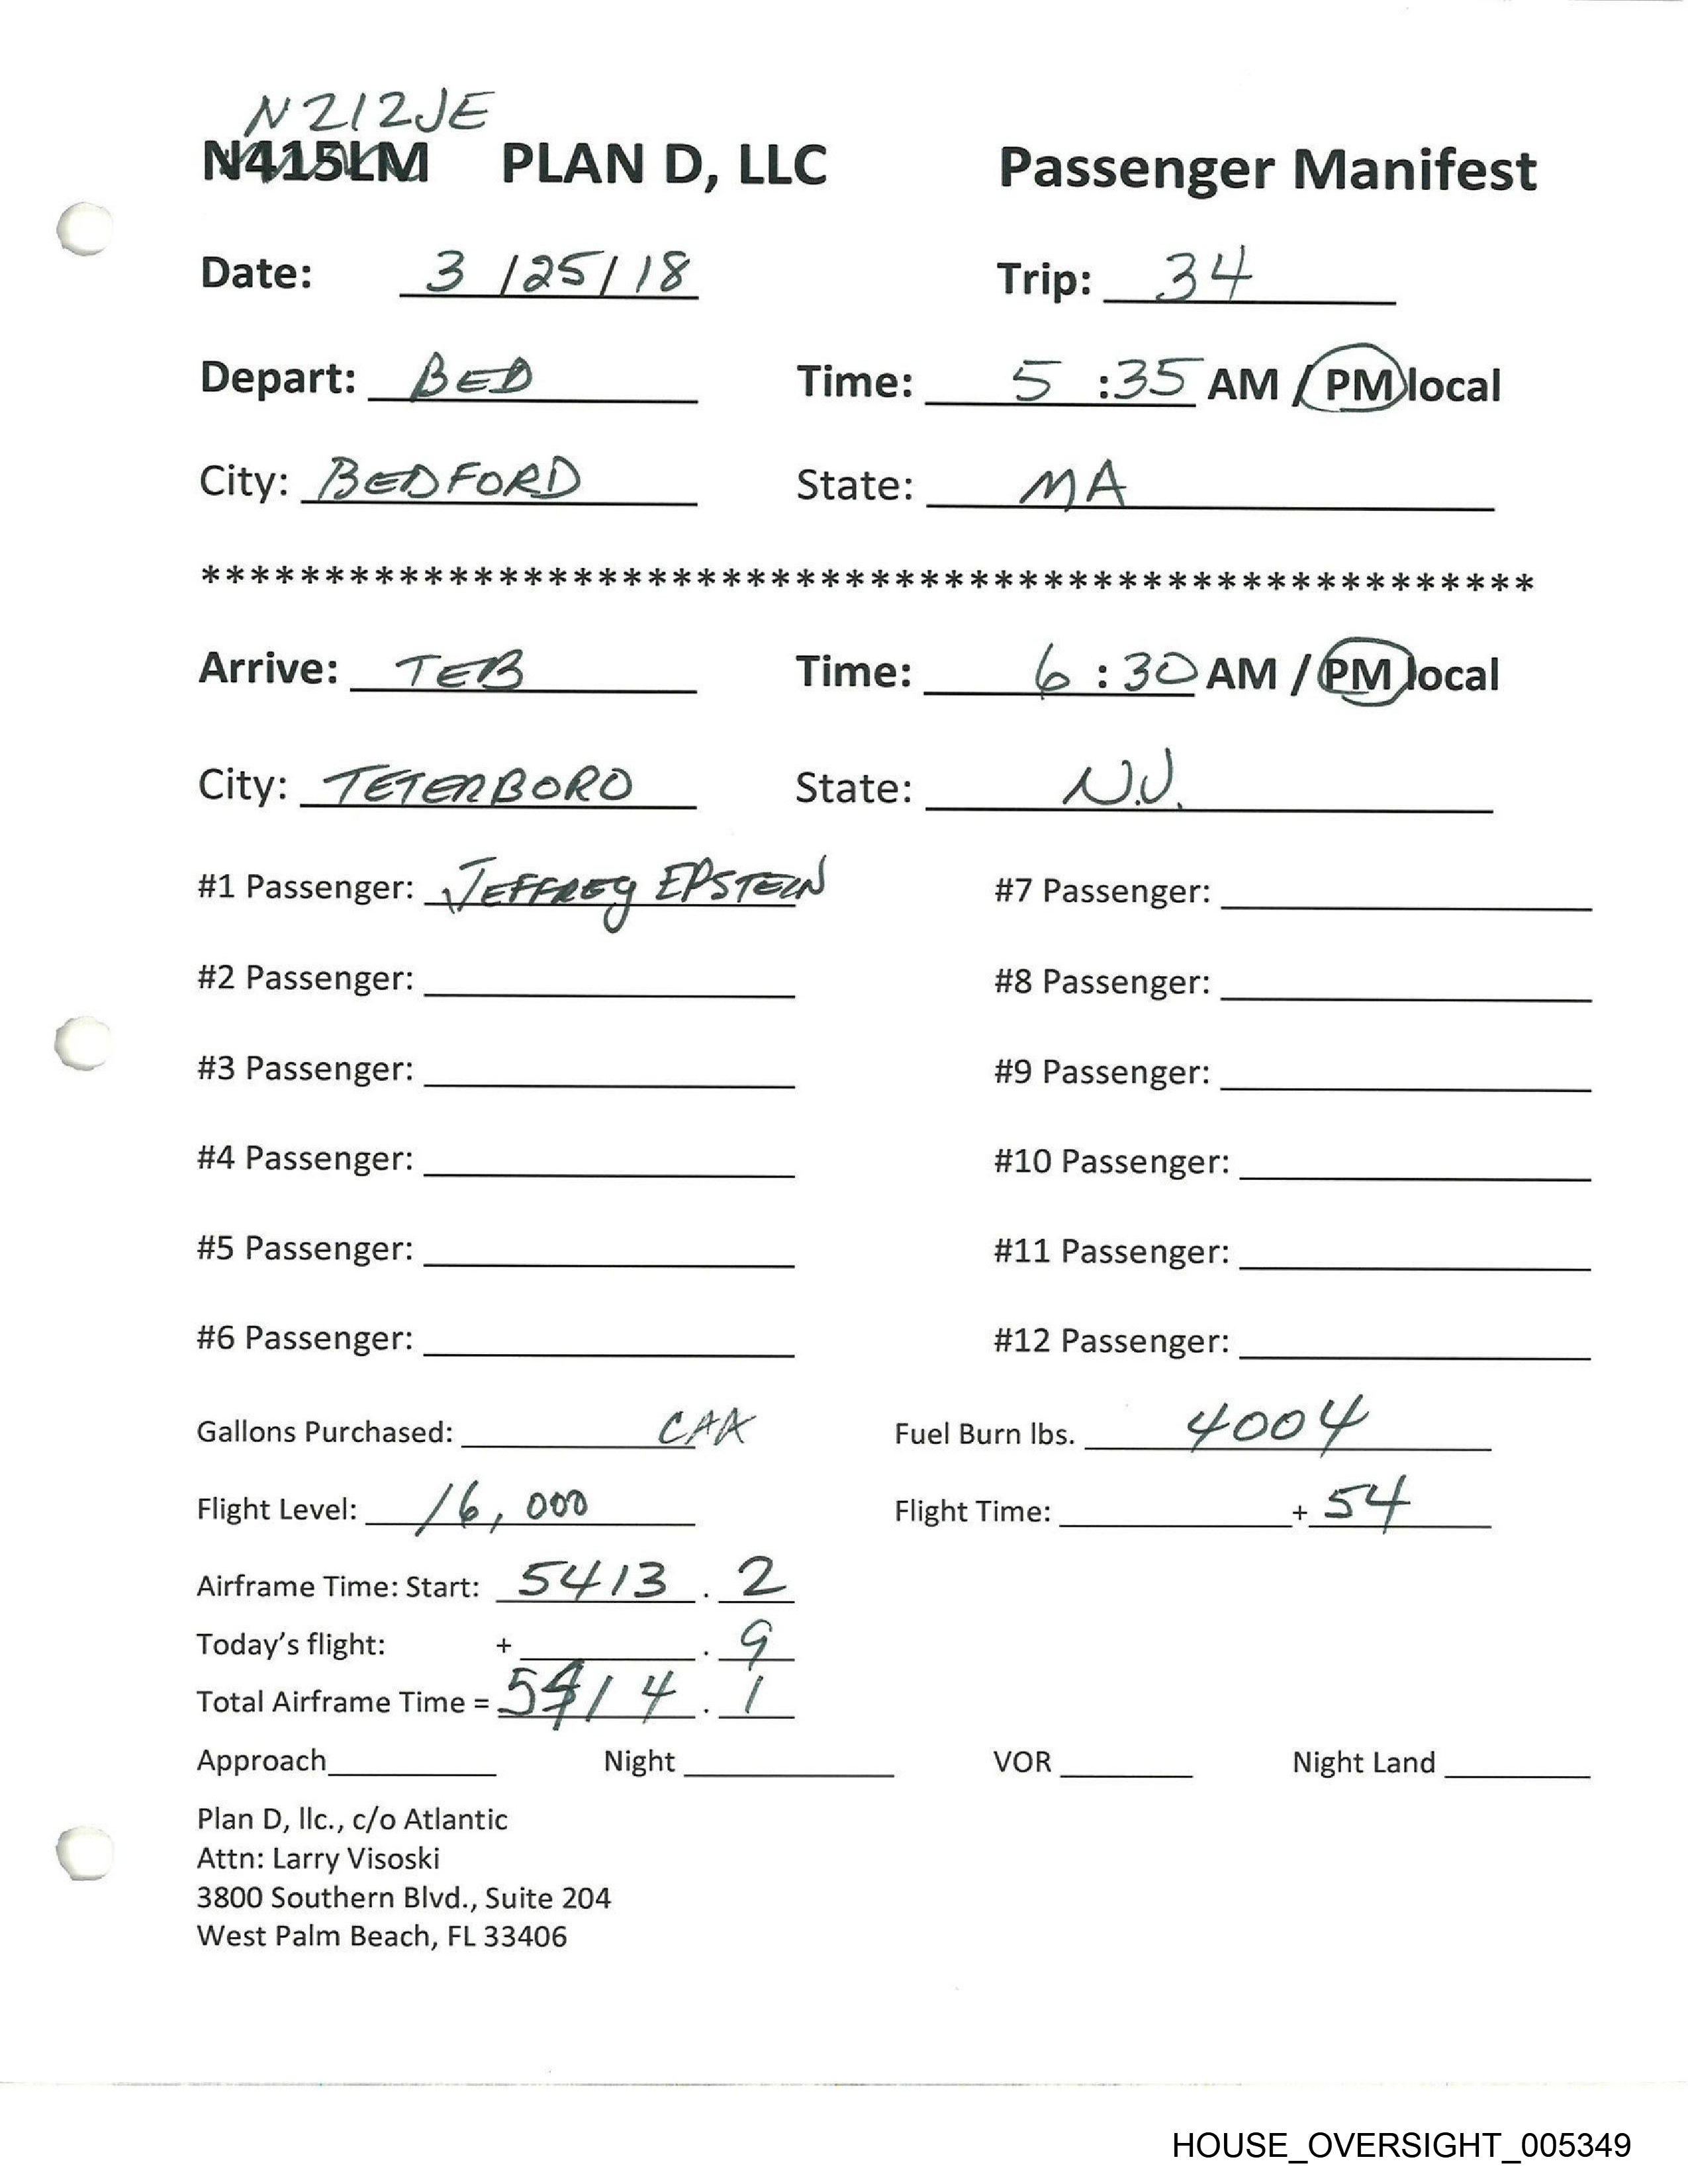 N212JE
N415LM PLAN D, LLC Passenger Manifest
Date: 3/25/18 Trip: 34
Depart: BED Time: 5:35 AM / PM local
City: BEDFORD State: MA
*******************************************************
Arrive: TEB Time: 6:30 AM / PM local
City: TETERBORO State: N.J.
#1 Passenger: JEFFREY EPSTEIN #7 Passenger:
#2 Passenger: #8 Passenger:
#3 Passenger: #9 Passenger:
#4 Passenger: #10 Passenger:
#5 Passenger: #11 Passenger:
#6 Passenger: #12 Passenger:
Gallons Purchased: CAA Fuel Burn lbs. 4004
Flight Level: 16,000 Flight Time: + 54
Airframe Time: Start: 5413 . 2
Today's flight: + . 9
Total Airframe Time = 5414 . 1
Approach Night VOR Night Land
Plan D, llc., c/o Atlantic
Attn: Larry Visoski
3800 Southern Blvd., Suite 204
West Palm Beach, FL 33406
HOUSE_OVERSIGHT_005349